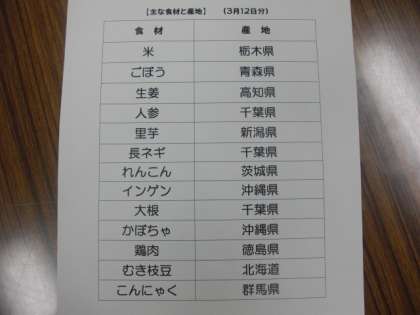 【主な食材と産地】 (3月12日分)
食 材 産 地
米 栃木県
ごぼう 青森県
生姜 高知県
人参 千葉県
里芋 新潟県
長ネギ 千葉県
れんこん 茨城県
インゲン 沖縄県
大根 千葉県
かぼちゃ 沖縄県
鶏肉 徳島県
むき枝豆 北海道
こんにゃく 群馬県